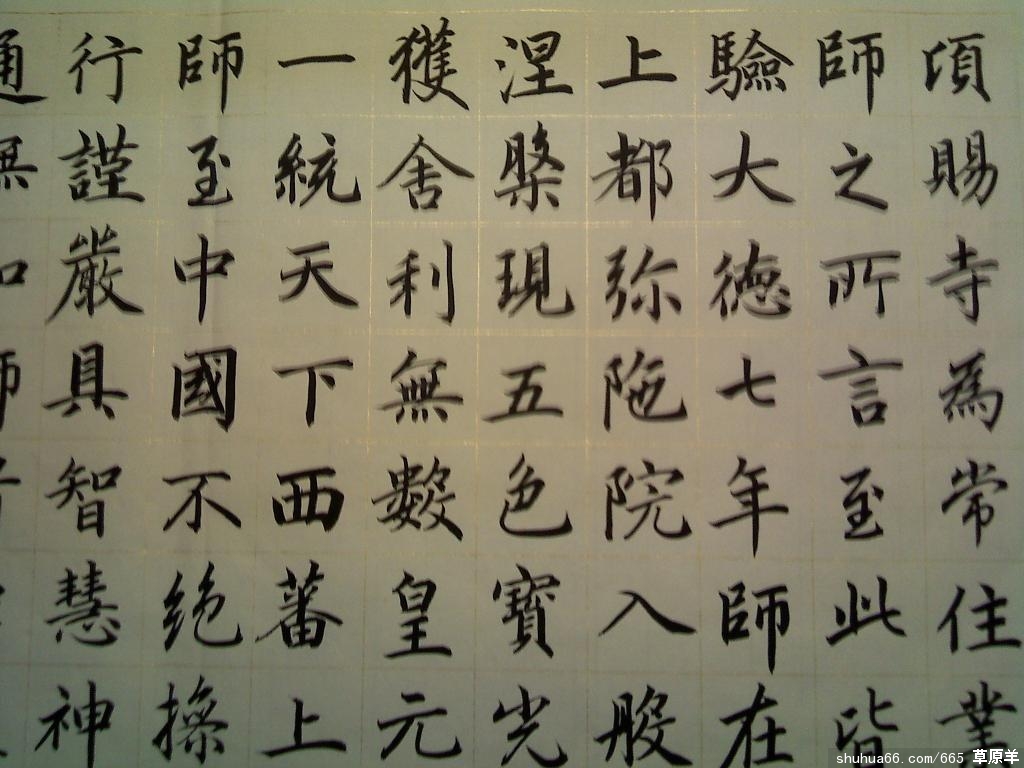 項賜寺為常住業
師之所言至此皆
驗大德七年師在
上都弥陁院入般
涅槃現五色寶光
獲舍利無數皇元
一統天下西蕃上
師至中國不绝操
行謹嚴具智慧神
通無
shuhua66.com/665 草原羊